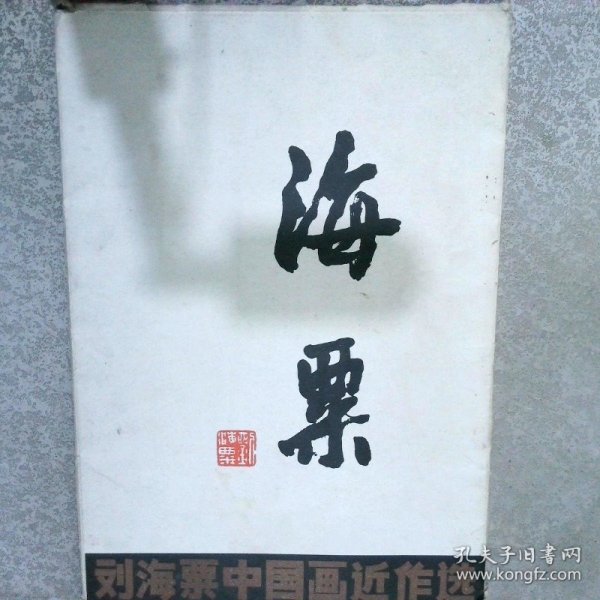 海
粟
刘海粟
刘海粟中国画近作选
孔夫子旧书网
www.kongfz.com